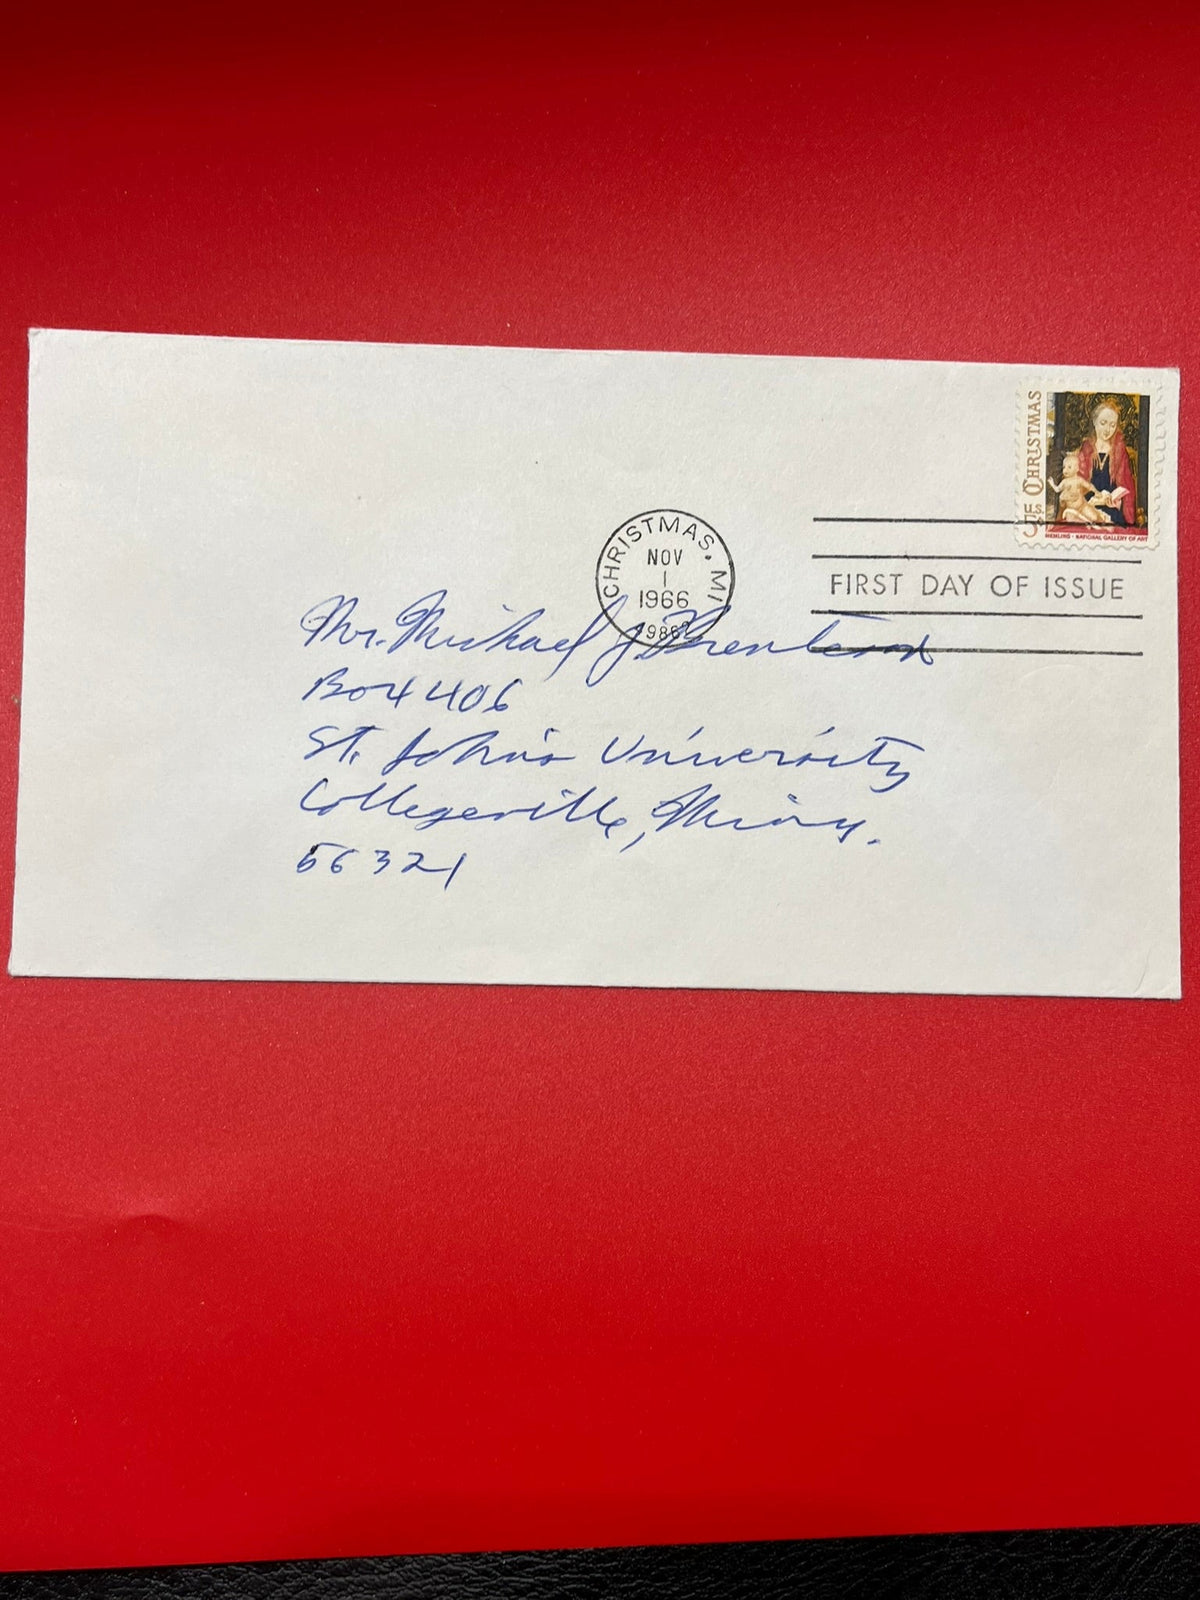 CHRISTMAS
5¢ U.S.
MEMLING · NATIONAL GALLERY OF ART
CHRISTMAS, MI
NOV
1
1966
49862
FIRST DAY OF ISSUE
Mr. Michael J.
Box 406
St. John's University
Collegeville, Minn.
56321